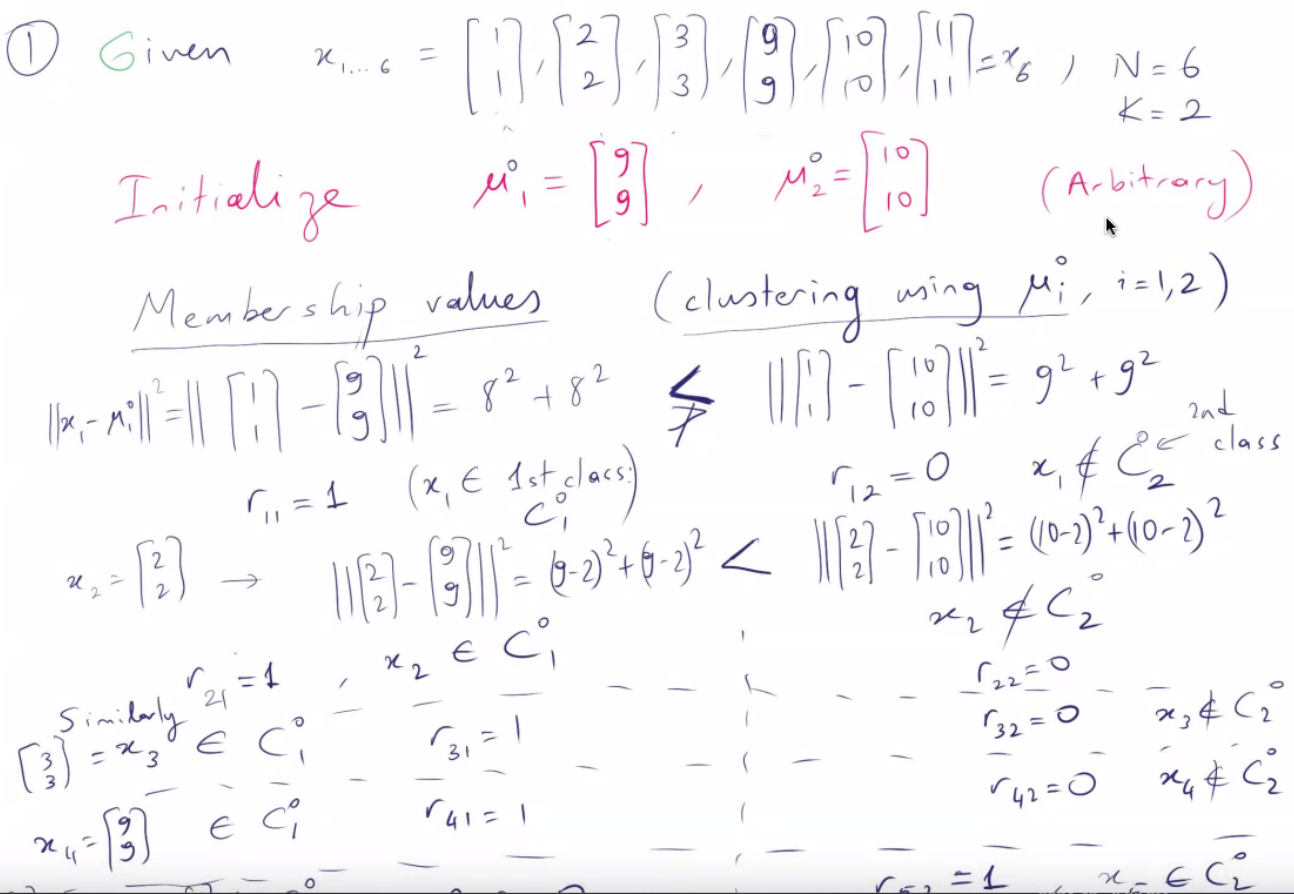 ① Given x₁...₆ = [1 1], [2 2], [3 3], [9 9], [10 10], [11 11] = x₆ , N = 6
K = 2
Initialize μ₁⁰ = [9 9] , μ₂⁰ = [10 10] (Arbitrary)
Membership values (clustering using μᵢ⁰, i=1,2)
||x₁-μ₁⁰||² = || [1 1] - [9 9] ||² = 8² + 8² ≶ || [1 1] - [10 10] ||² = 9² + 9²
r₁₁ = 1 (x₁ ∈ 1st class: C₁⁰) r₁₂ = 0 x₁ ∉ C₂⁰ ← 2nd class
x₂ = [2 2] → || [2 2] - [9 9] ||² = (9-2)² + (9-2)² < || [2 2] - [10 10] ||² = (10-2)² + (10-2)²
r₂₁ = 1 , x₂ ∈ C₁⁰ x₂ ∉ C₂⁰
r₂₂ = 0
Similarly
[3 3] = x₃ ∈ C₁⁰ r₃₁ = 1 r₃₂ = 0 x₃ ∉ C₂⁰
x₄ = [9 9] ∈ C₁⁰ r₄₁ = 1 r₄₂ = 0 x₄ ∉ C₂⁰
= 1 ∈ C₂⁰